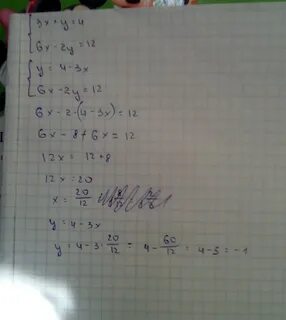 3x + y = 4
6x - 2y = 12
y = 4 - 3x
6x - 2y = 12
6x - 2·(4 - 3x) = 12
6x - 8 + 6x = 12
12x = 12 + 8
12x = 20
x = 20/12
y = 4 - 3x
y = 4 - 3 · 20/12 = 4 - 60/12 = 4 - 5 = -1